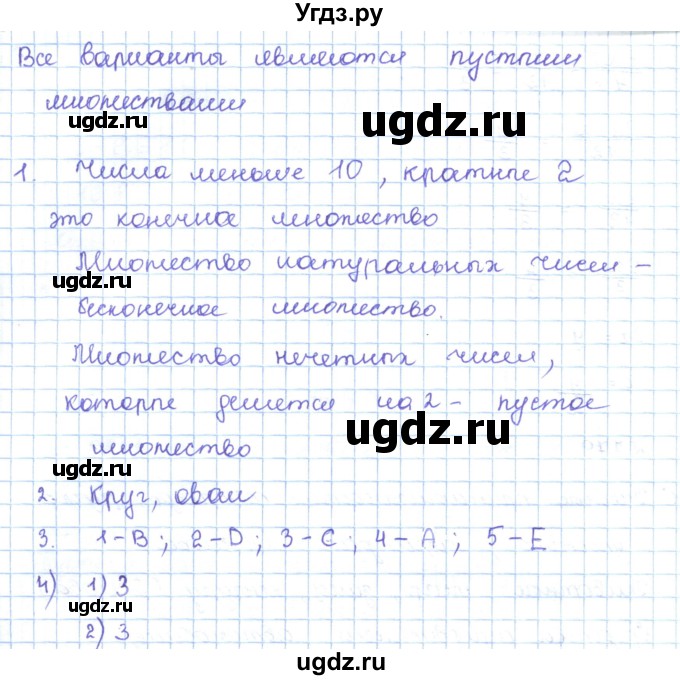 Угдз.ру
Все варианты являются пустыми
множествами
ugdz.ru ugdz.ru
1. Числа меньше 10, кратные 2
это конечное множество
Множество натуральных чисел -
ugdz.ru
бесконечное множество.
Множество нечетных чисел,
которые делятся на 2 - пустое
ugdz.ru
множество
ugdz.ru
2. Круг, овал
3. 1-B; 2-D; 3-C; 4-A; 5-E
4) 1) 3
ugdz.ru
2) 3
ugdz.ru